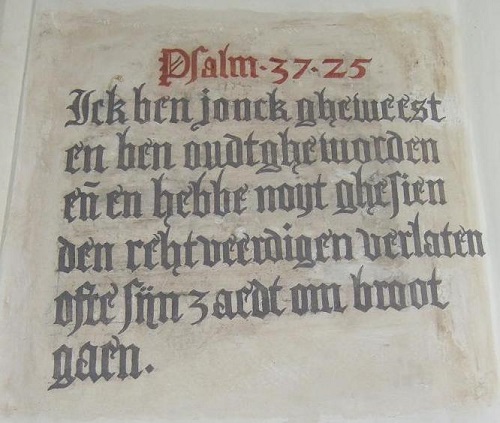 Psalm·37·25
Ick ben jonck gheweest
en ben oudtgheworden
eñ en hebbe noyt ghesien
den rehtveerdigen verlaten
ofte sijn zaedt om broot
gaen.